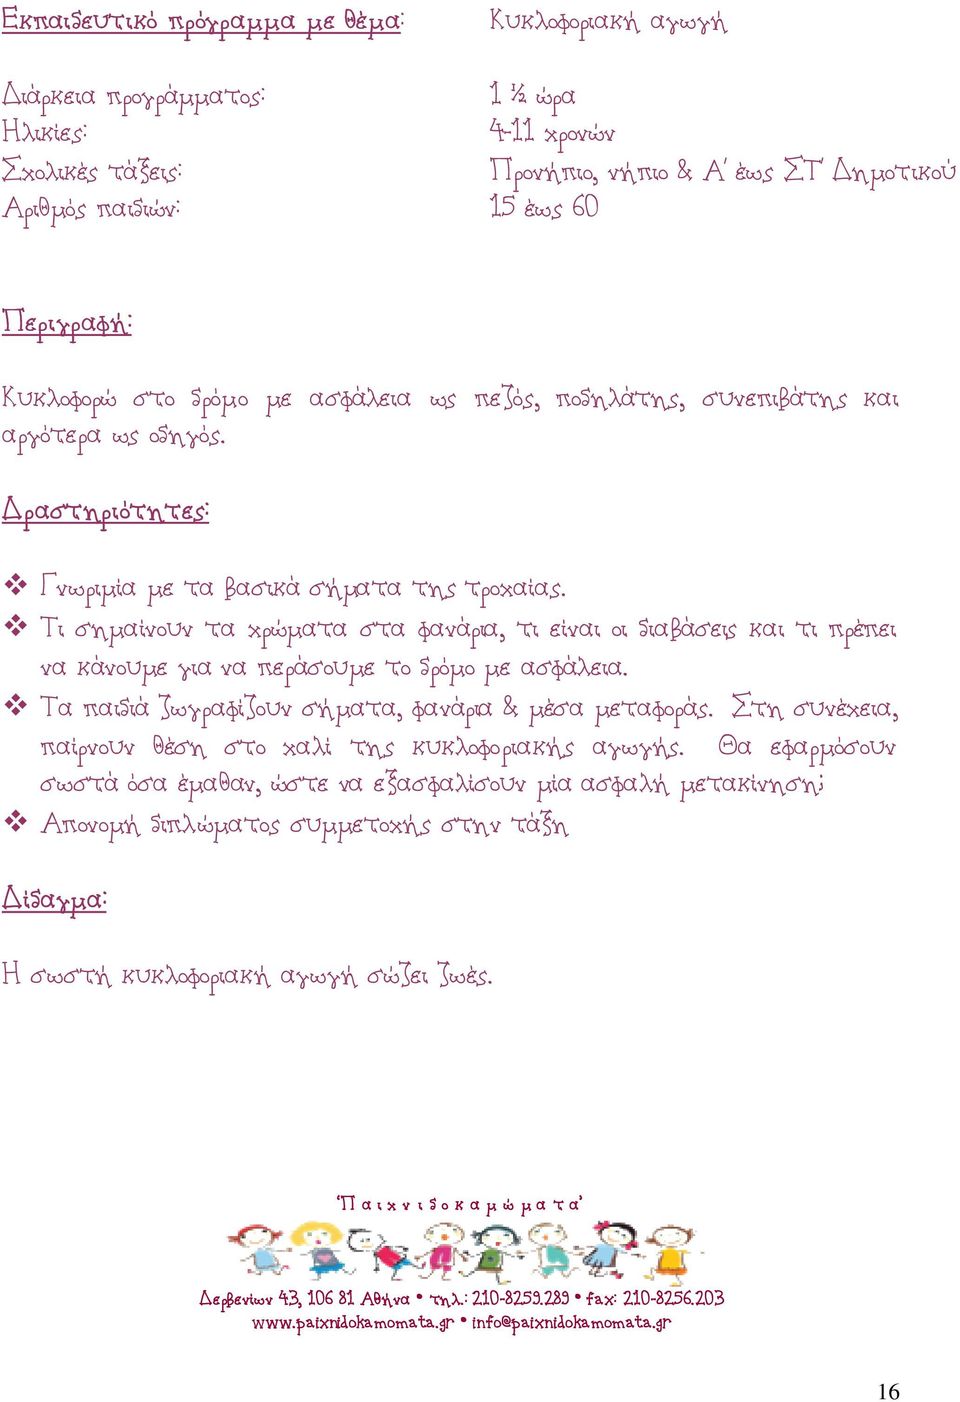 Εκπαιδευτικό πρόγραμμα με θέμα: Κυκλοφοριακή αγωγή
Διάρκεια προγράμματος: 1 ½ ώρα
Ηλικίες: 4-11 χρονών
Σχολικές τάξεις: Προνήπιο, νήπιο & Α΄ έως ΣΤ΄ Δημοτικού
Αριθμός παιδιών: 15 έως 60
Περιγραφή:
Κυκλοφορώ στο δρόμο με ασφάλεια ως πεζός, ποδηλάτης, συνεπιβάτης και
αργότερα ως οδηγός.
Δραστηριότητες:
❖ Γνωριμία με τα βασικά σήματα της τροχαίας.
❖ Τι σημαίνουν τα χρώματα στα φανάρια, τι είναι οι διαβάσεις και τι πρέπει
να κάνουμε για να περάσουμε το δρόμο με ασφάλεια.
❖ Τα παιδιά ζωγραφίζουν σήματα, φανάρια & μέσα μεταφοράς. Στη συνέχεια,
παίρνουν θέση στο χαλί της κυκλοφοριακής αγωγής. Θα εφαρμόσουν
σωστά όσα έμαθαν, ώστε να εξασφαλίσουν μία ασφαλή μετακίνηση;
❖ Απονομή διπλώματος συμμετοχής στην τάξη
Δίδαγμα:
Η σωστή κυκλοφοριακή αγωγή σώζει ζωές.
‘Π α ι χ ν ι δ ο κ α μ ώ μ α τ α’
Δερβενίων 43, 106 81 Αθήνα • τηλ.: 210-8259.289 • fax: 210-8256.203
www.paixnidokamomata.gr • info@paixnidokamomata.gr
16